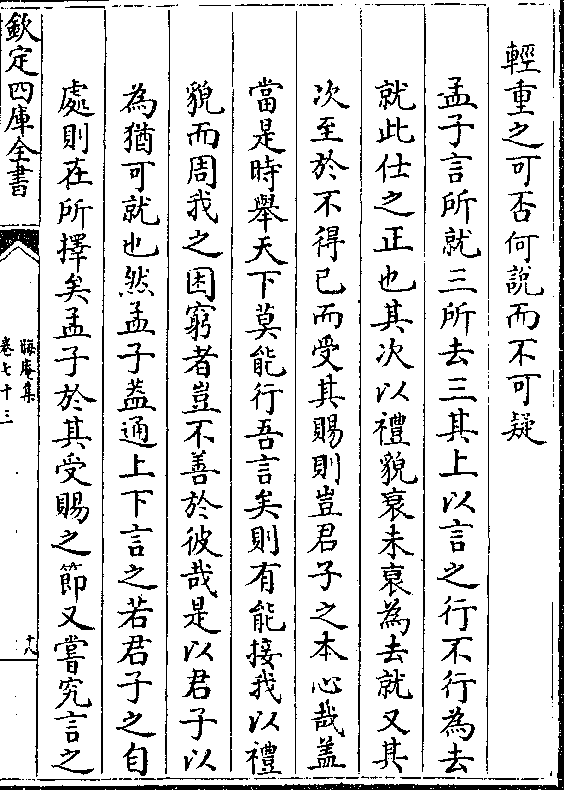 輕重之可否何說而不可疑
孟子言所就三所去三其上以言之行不行為去
就此仕之正也其次以禮貌衰未衰為去就又其
次至於不得已而受其賜則豈君子之本心哉蓋
當是時舉天下莫能行吾言矣則有能接我以禮
貌而周我之困窮者豈不善於彼哉是以君子以
為猶可就也然孟子蓋通上下言之若君子之自
處則在所擇矣孟子於其受賜之節又嘗究言之
欽定四庫全書
晦庵集
卷七十三
十八